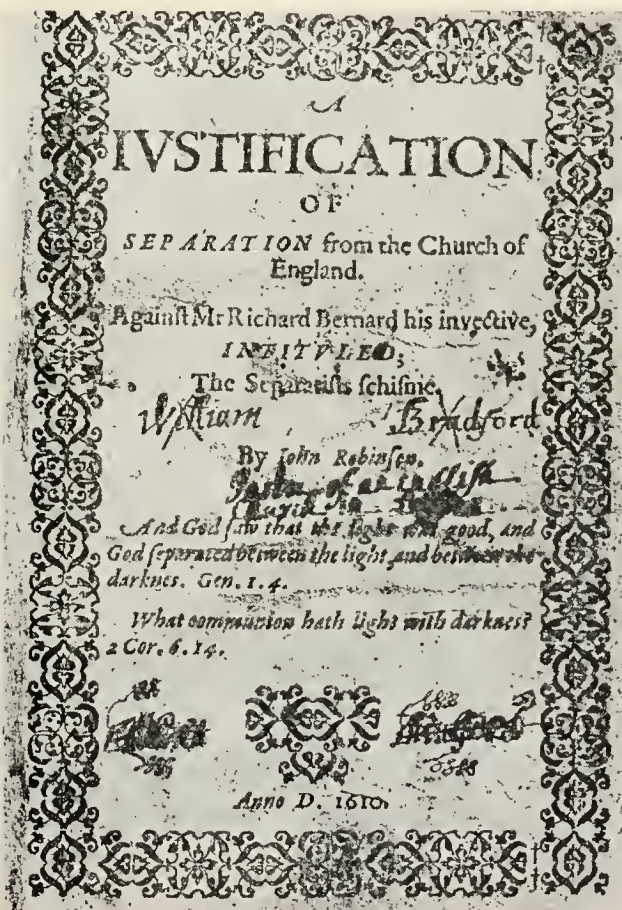 A
IVSTIFICATION
OF
SEPARATION from the Church of
England.
Againſt Mr Richard Bernard his invective,
INTITVLED;
The Separatiſts ſchiſme.
William Bradford
By Iohn Robinſon.
And God ſaw that the light was good, and
God ſeparated between the light, and between the
darknes. Gen. 1. 4.
What communion hath light with darknes?
2 Cor. 6. 14.
Anno D. 1610.